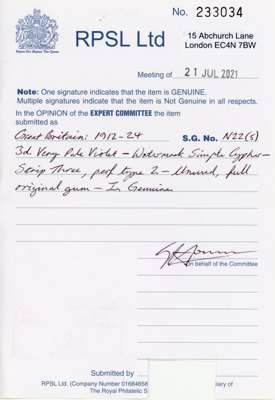 No. 233034
RPSL Ltd
15 Abchurch Lane
London EC4N 7BW
Meeting of 21 JUL 2021
Note: One signature indicates that the item is GENUINE.
Multiple signatures indicate that the item is Not Genuine in all respects.
In the OPINION of the EXPERT COMMITTEE the item
submitted as
Great Britain: 1912-24 S.G. No. N22(5)
3d. Very Pale Violet – Watermark Simple Cypher –
Strip Three, perf type 2 – Unused, full
original gum – Is Genuine
On behalf of the Committee
Submitted by
RPSL Ltd. (Company Number 01684656 diary of
The Royal Philatelic S